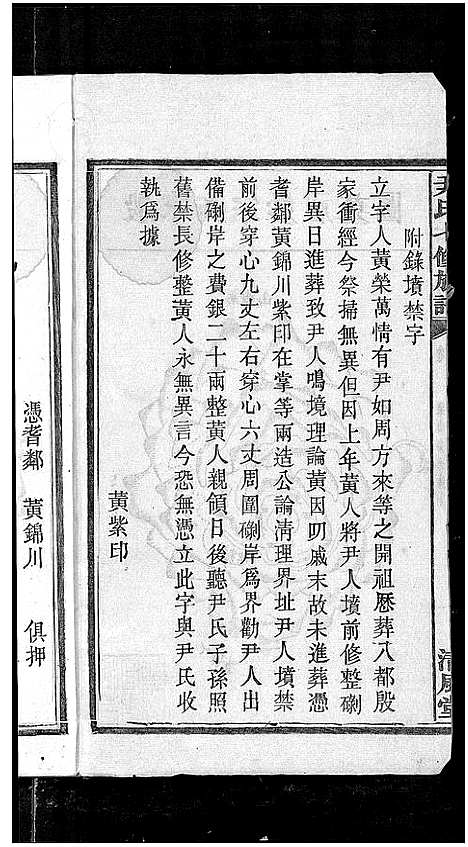 尹氏七修族譜
清風堂
附錄墳禁字
立字人黃榮萬情有尹如周方來等之開祖歷葬八都殷
家衝經今祭掃無異但因上年黃人將尹人墳前修整磡
岸異日進葬致尹人鳴境理論黃因叨戚末故未進葬憑
耆鄰黃錦川紫印在堂等兩造公論清理界址尹人墳禁
前後穿心九丈左右穿心六丈周圍磡岸為界勸尹人出
備磡岸之費銀二十兩整黃人親領日後聽尹氏子孫照
舊禁長修整黃人永無異言今恐無憑立此字與尹氏收
執為據
黃紫印
憑耆鄰 黃錦川 俱押